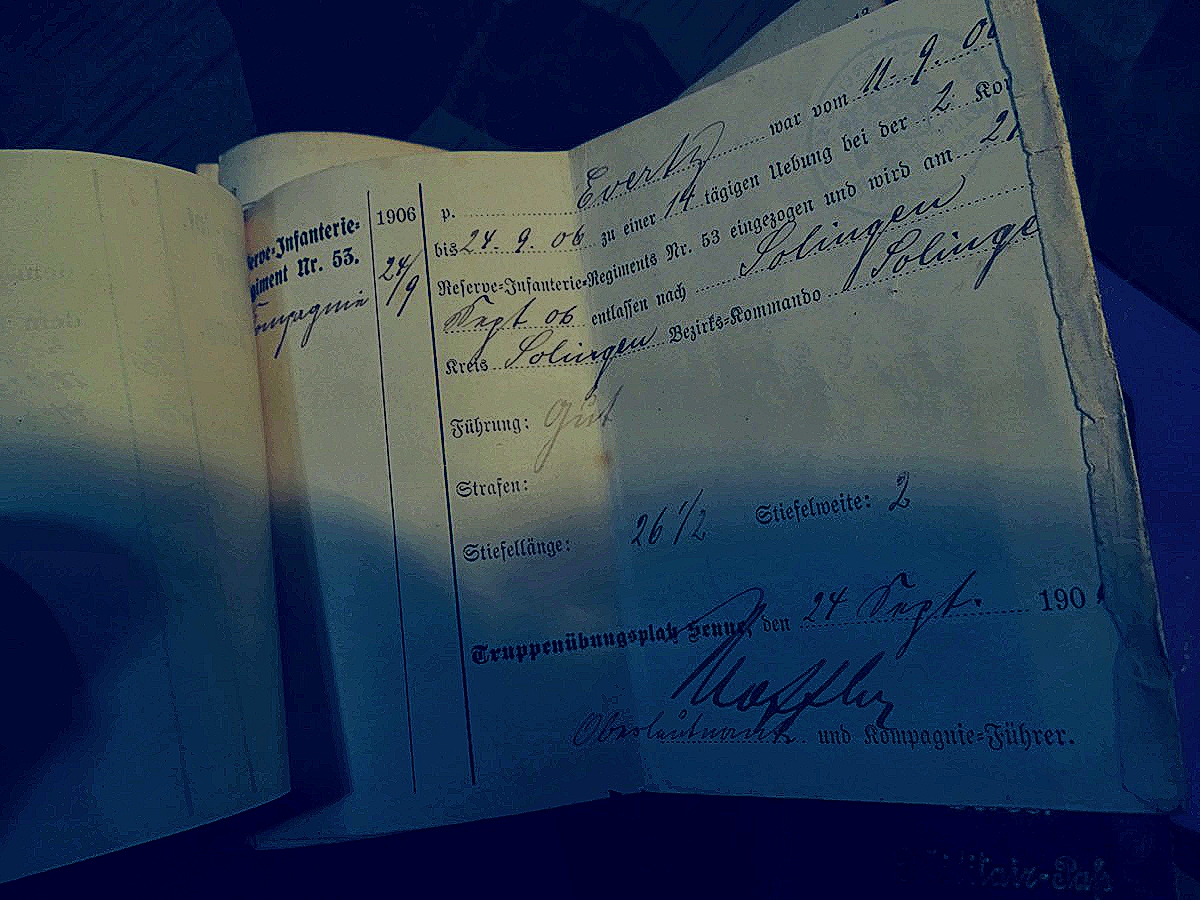 Reserve-Infanterie-
Regiment Nr. 53.
Kompagnie
1906
24/9
p. Evertz war vom 11. 9. 06
bis 24. 9. 06 zu einer 14 tägigen Uebung bei der 2 Kom
Reserve-Infanterie-Regiments Nr. 53 eingezogen und wird am
Sept 06 entlassen nach Solingen
Kreis Solingen Bezirks-Kommando Solinge
Führung: Gut
Strafen:
Stiefellänge: 26 1/2 Stiefelweite: 2
Truppenübungsplatz Senne, den 24 Sept. 190
Oberleutnant und Kompagnie-Führer.
Militair-Paß